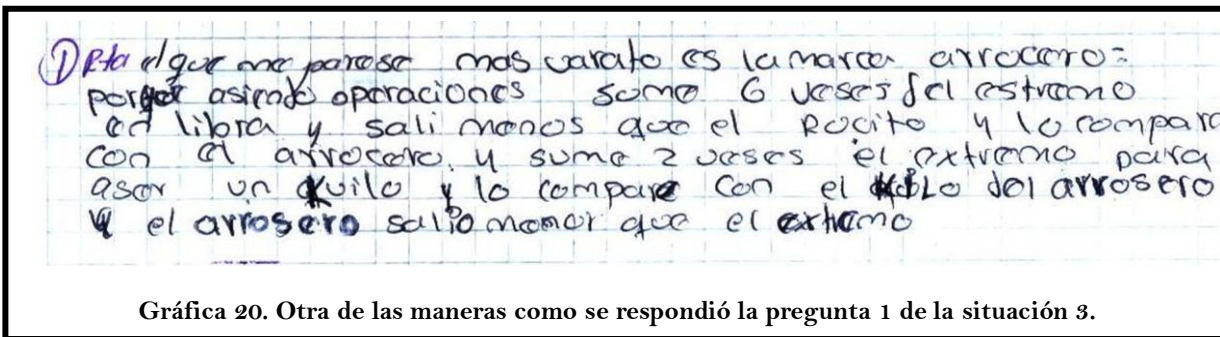 ① Rta el que me parese mas varato es la marca arrocero:
porque asiendo operaciones some 6 veses del estremo
en libra y sali menos que el Rocito y lo compara
con el arrocero. y sume 2 veses el extremo para
aser un kuilo y lo compare con el kilo del arrosero
y el arrosero salio menor que el extremo
Gráfica 20. Otra de las maneras como se respondió la pregunta 1 de la situación 3.